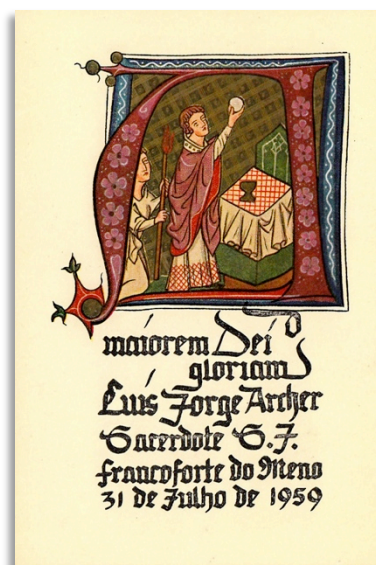 AD
maiorem Dei
gloriam
Luís Jorge Archer
Sacerdote S.J.
Francoforte do Meno
31 de Julho de 1959